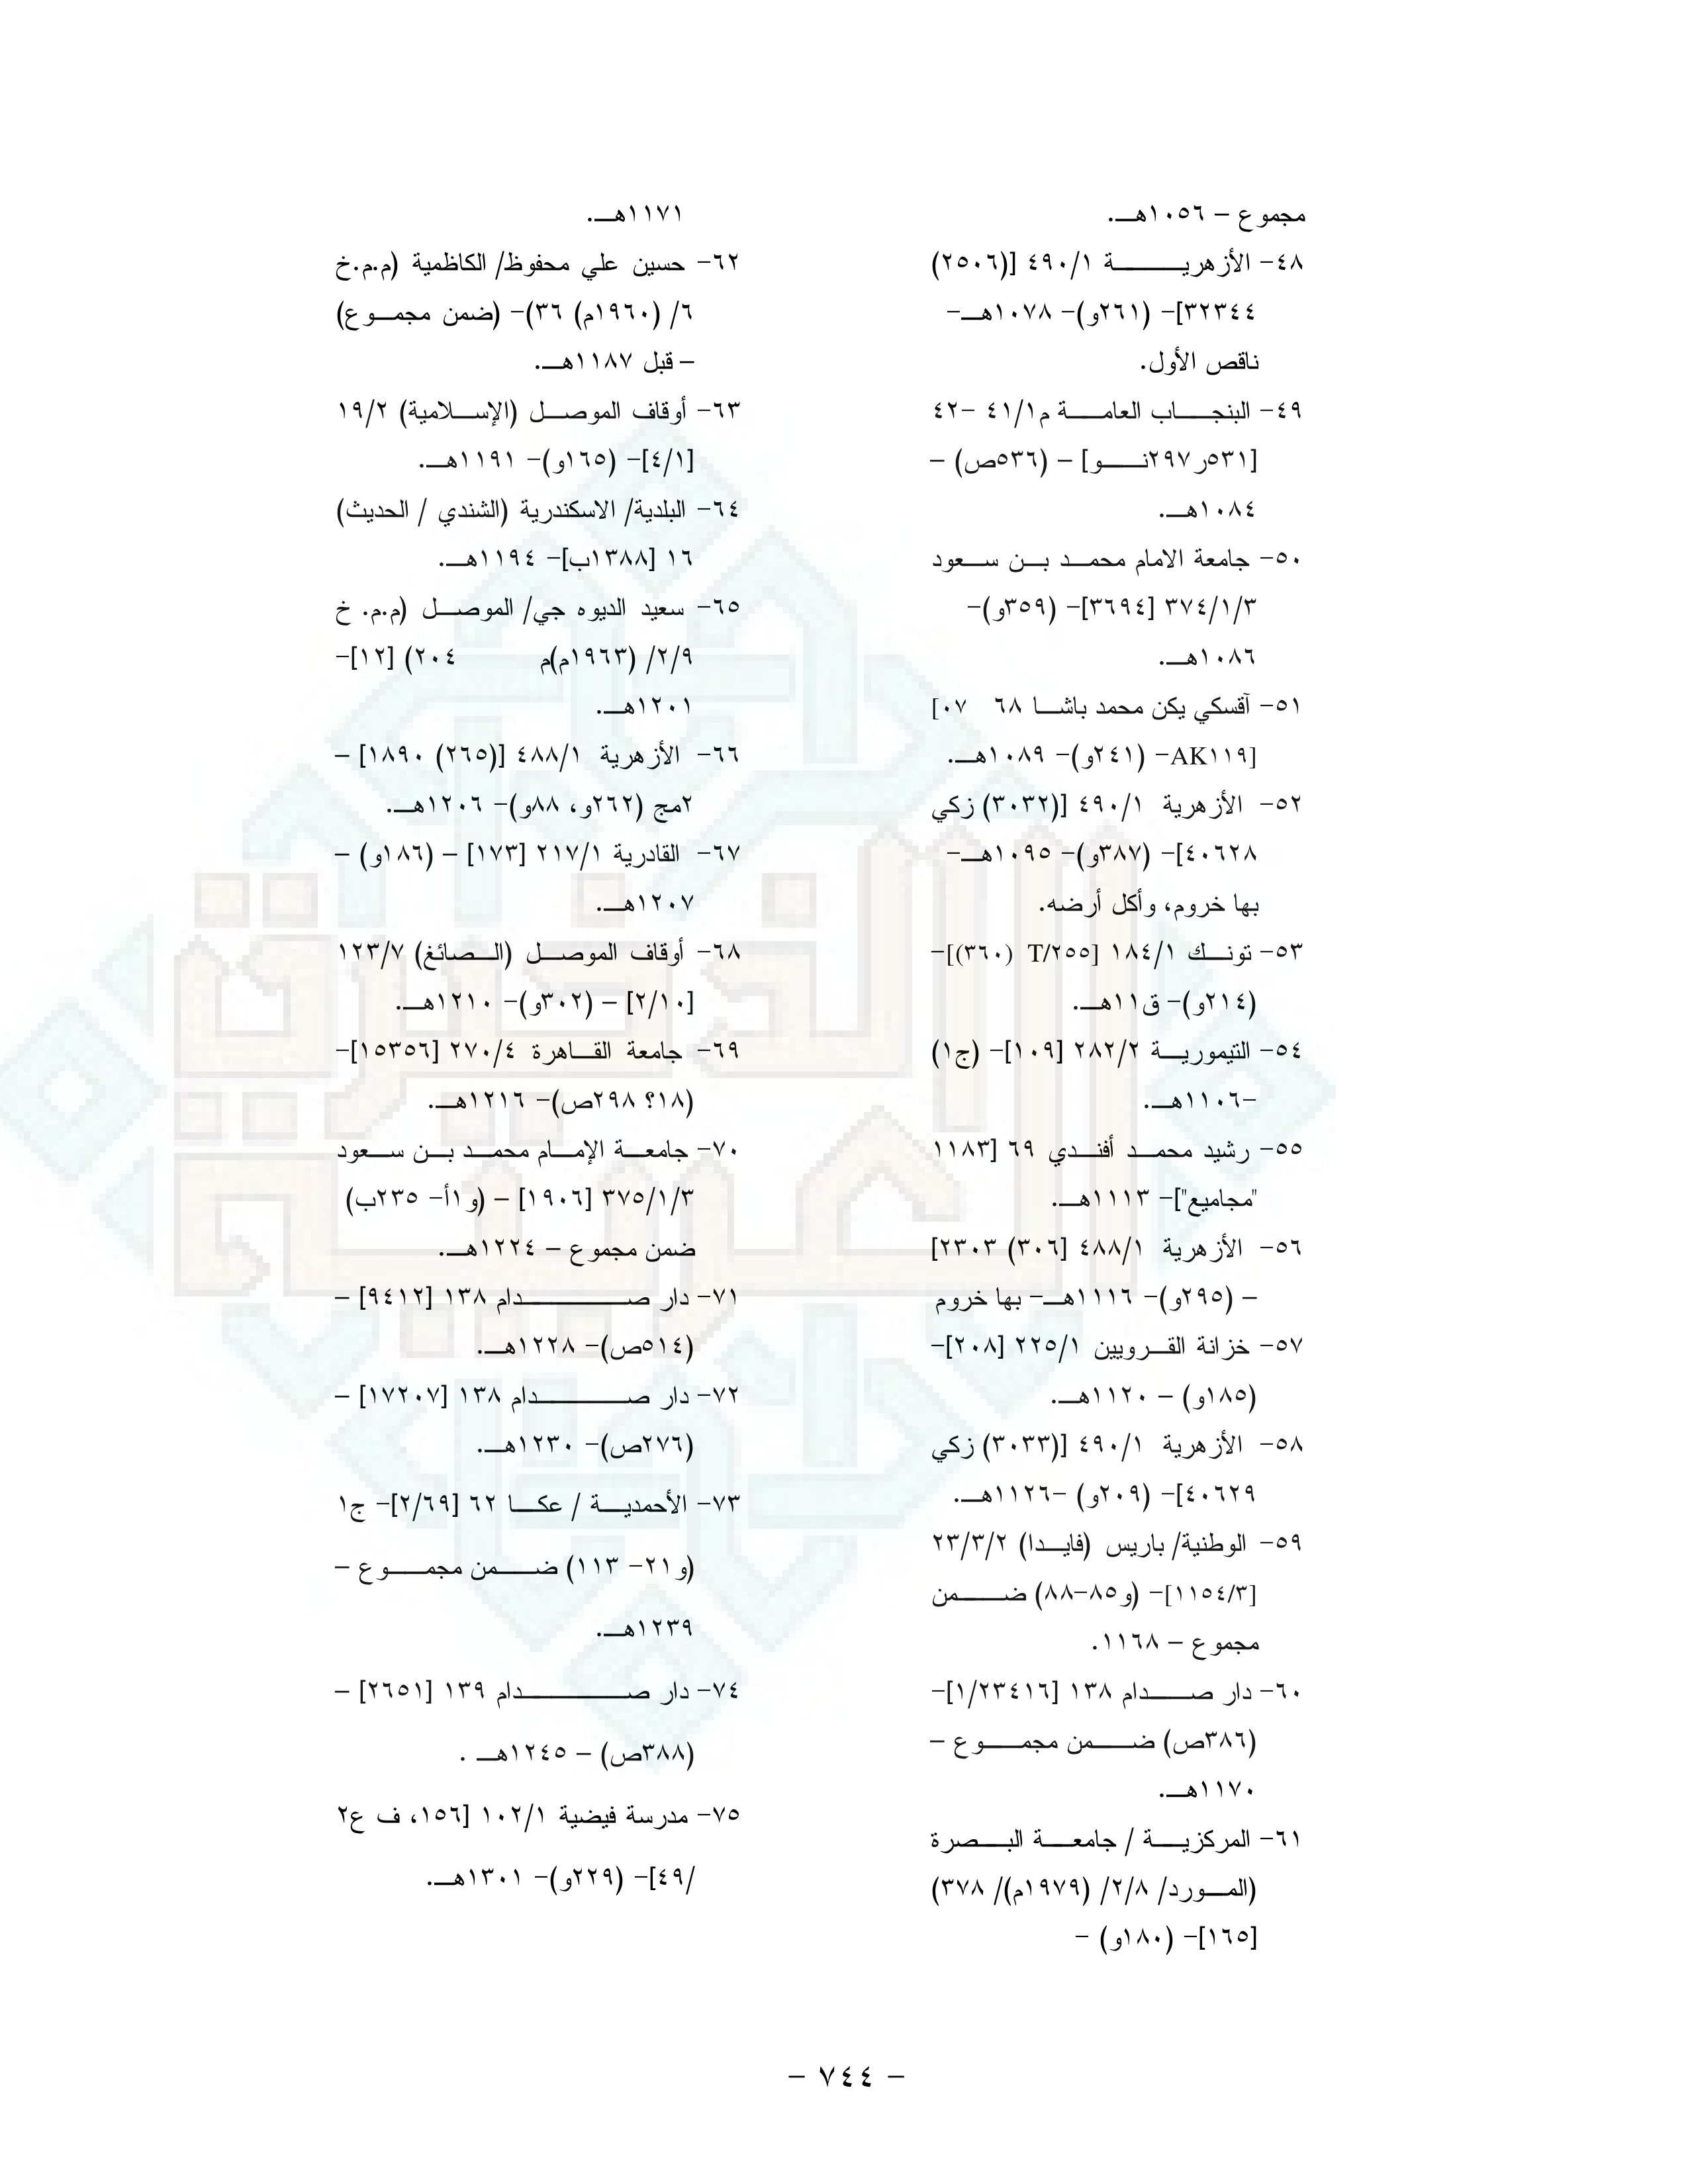 مجموع – ١٠٥٦هـ.
٤٨- الأزهرية ٤٩٠/١ [(٢٥٠٦)
٣٢٣٤٤]- (٢٦١و)- ١٠٧٨هـ-
ناقص الأول.
٤٩- البنجاب العامة م٤١/١ -٤٢
[٥٣١ر٢٩٧نو] – (٥٣٦ص) –
١٠٨٤هـ.
٥٠- جامعة الامام محمد بن سعود
٣٧٤/١/٣ [٣٦٩٤]- (٣٥٩و)-
١٠٨٦هـ.
٥١- آقسكي يكن محمد باشا ٦٨ ٠٧]
[AK١١٩- (٢٤١و)- ١٠٨٩هـ.
٥٢- الأزهرية ٤٩٠/١ [(٣٠٣٢) زكي
٤٠٦٢٨]- (٣٨٧و)- ١٠٩٥هـ-
بها خروم، وأكل أرضه.
٥٣- تونك ١٨٤/١ [T/٢٥٥ (٣٦٠)]-
(٢١٤و)- ق١١هـ.
٥٤- التيمورية ٢٨٢/٢ [١٠٩]- (ج١)
-١١٠٦هـ.
٥٥- رشيد محمد أفندي ٦٩ [١١٨٣
"مجاميع"]- ١١١٣هـ.
٥٦- الأزهرية ٤٨٨/١ [٣٠٦) ٢٣٠٣]
– (٢٩٥و)- ١١١٦هـ- بها خروم
٥٧- خزانة القرويين ٢٢٥/١ [٢٠٨]-
(١٨٥و) – ١١٢٠هـ.
٥٨- الأزهرية ٤٩٠/١ [(٣٠٣٣) زكي
٤٠٦٢٩]- (٢٠٩و) -١١٢٦هـ.
٥٩- الوطنية/ باريس (فايدا) ٢٣/٣/٢
[١١٥٤/٣]- (و٨٥-٨٨) ضمن
مجموع – ١١٦٨.
٦٠- دار صدام ١٣٨ [١/٢٣٤١٦]-
(٣٨٦ص) ضمن مجموع –
١١٧٠هـ.
٦١- المركزية / جامعة البصرة
(المورد/ ٢/٨/ (١٩٧٩م)/ ٣٧٨)
[١٦٥]- (١٨٠و) -
١١٧١هـ.
٦٢- حسين علي محفوظ/ الكاظمية (م.م.خ
٦/ (١٩٦٠م) ٣٦)- (ضمن مجموع)
– قبل ١١٨٧هـ.
٦٣- أوقاف الموصل (الإسلامية) ١٩/٢
[٤/١]- (١٦٥و)- ١١٩١هـ.
٦٤- البلدية/ الاسكندرية (الشندي / الحديث)
١٦ [١٣٨٨ب]- ١١٩٤هـ.
٦٥- سعيد الديوه جي/ الموصل (م.م. خ
٢/٩/ (١٩٦٣م)م ٢٠٤) [١٢]-
١٢٠١هـ.
٦٦- الأزهرية ٤٨٨/١ [(٢٦٥) ١٨٩٠] –
٢مج (٢٦٢و، ٨٨و)- ١٢٠٦هـ.
٦٧- القادرية ٢١٧/١ [١٧٣] – (١٨٦و) –
١٢٠٧هـ.
٦٨- أوقاف الموصل (الصائغ) ١٢٣/٧
[٢/١٠] – (٣٠٢و)- ١٢١٠هـ.
٦٩- جامعة القاهرة ٢٧٠/٤ [١٥٣٥٦]-
(١٨؟ ٢٩٨ص)- ١٢١٦هـ.
٧٠- جامعة الإمام محمد بن سعود
٣٧٥/١/٣ [١٩٠٦] – (و١أ- ٢٣٥ب)
ضمن مجموع – ١٢٢٤هـ.
٧١- دار صدام ١٣٨ [٩٤١٢] –
(٥١٤ص)- ١٢٢٨هـ.
٧٢- دار صدام ١٣٨ [١٧٢٠٧] –
(٢٧٦ص)- ١٢٣٠هـ.
٧٣- الأحمدية / عكا ٦٢ [٢/٦٩]- ج١
(و٢١- ١١٣) ضمن مجموع –
١٢٣٩هـ.
٧٤- دار صدام ١٣٩ [٢٦٥١] –
(٣٨٨ص) – ١٢٤٥هـ .
٧٥- مدرسة فيضية ١٠٢/١ [١٥٦، ف ع٢
/٤٩]- (٢٢٩و)- ١٣٠١هـ.
– ٧٤٤ –